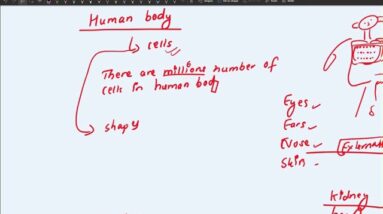 Human body
cells
There are millions number of
cells in human body
shapy
Eyes
Ears
Nose
Skin
Externa
kidney